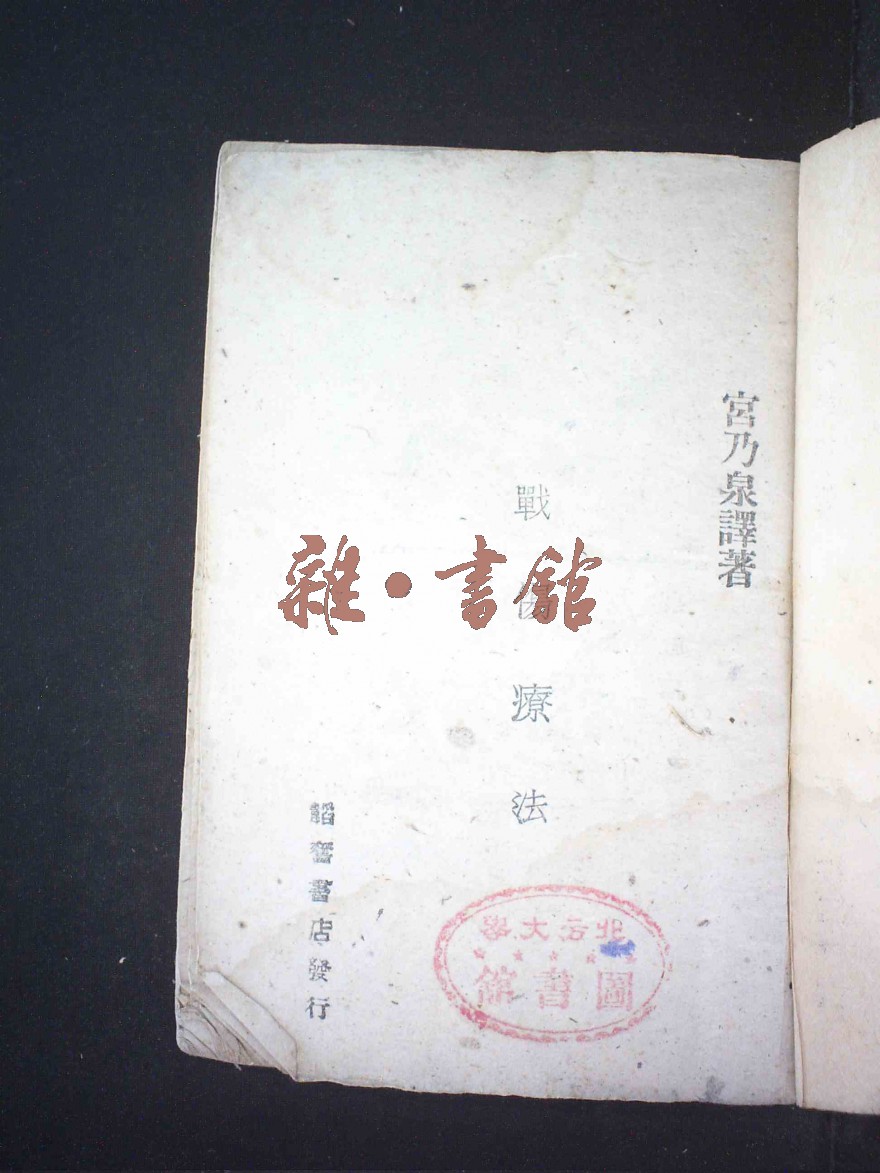 宮乃泉譯著
戰傷療法
韜奮書店發行
雜·書館
圖書館